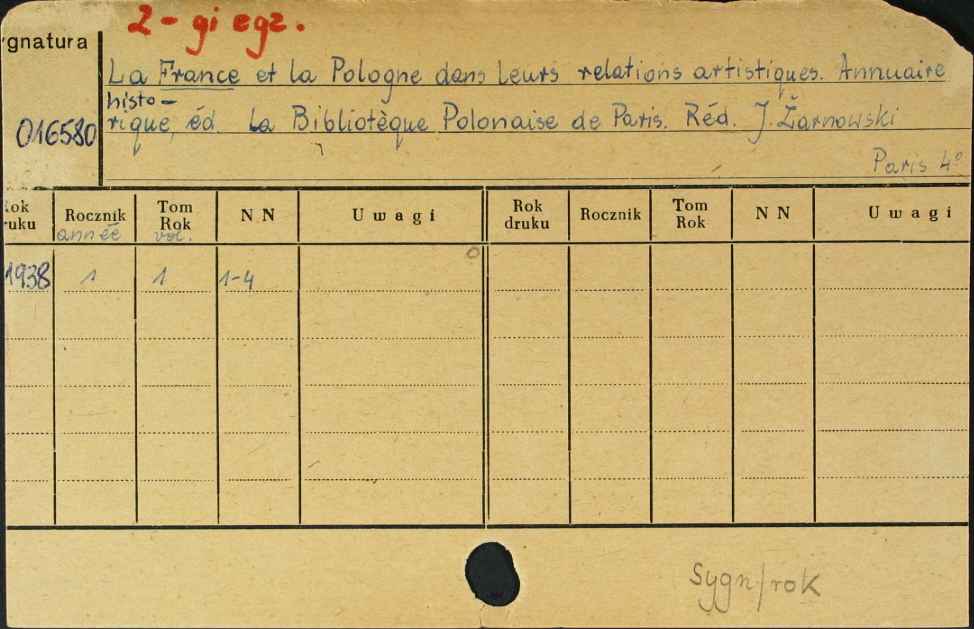 2-gi egz.
ygnatura
La France et la Pologne dans leurs relations artistiques. Annuaire
histo-
rique, éd. La Bibliotèque Polonaise de Paris. Réd. J. Żarnowski
016580
Paris 4°
Rok druku Rocznik Tom Rok NN Uwagi Rok druku Rocznik Tom Rok NN Uwagi
année vol.
1938 1 1 1-4
Sygn/rok